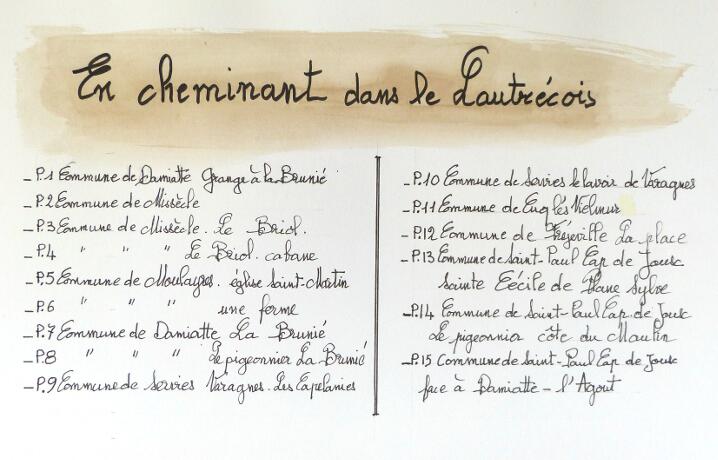 En cheminant dans le Lautrécois
_P.1 Commune de Damiatte Grange à la Brunié
_P.2 Commune de Missècle
_P.3 Commune de Missècle. Le Briol.
_P.4 " " " Le Briol cabane
_P.5 Commune de Moulayres. église Saint-Martin
_P.6 " " " une ferme
_P.7 Commune de Damiatte La Brunié
_P.8 " " " Le pigeonnier La Brunié
_P.9 Commune de Serviès Varagnes. Les Capelaniés
_P.10 Commune de Serviès le lavoir de Varagnes
_P.11 Commune de Guitalens
_P.12 Commune de Fréjeville La place
_P.13 Commune de Saint-Paul Cap de Joux
Sainte Cécile de Plane Sylve
_P.14 Commune de Saint-Paul Cap. de Joux
Le pigeonnier côte du Moulin
_P.15 Commune de Saint-Paul Cap de Joux
face à Damiatte - l'Agout